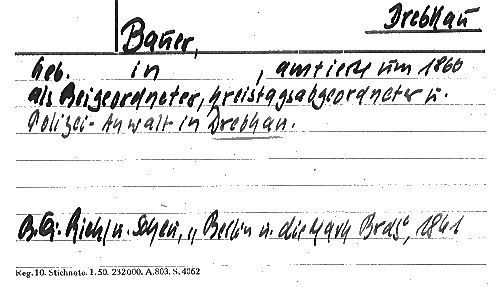 Drebkau
Bauer,
geb. in , amtierte um 1860
als Beigeordneter, Kreistagsabgeordneter u.
Polizei-Anwalt in Drebkau.
B.G. Riehl u. Scheu, „Berlin u. die Mark Brdg", 1861
Reg. 10. Stichnote. I. 50. 232000. A. 803. S. 4062